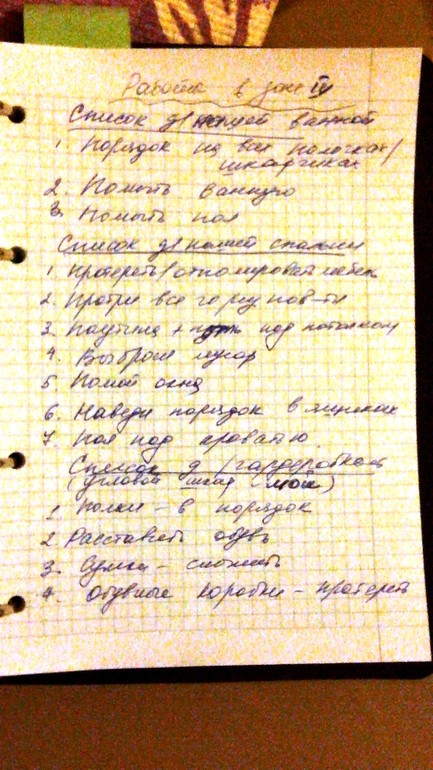 Работа в зоне IV
Список д/нашей ванной
1. Порядок на всех полочках/
шкафчиках
2. Помыть ванную
3. Помыть пол
Список д/нашей спальни
1. Протереть/отполировать мебель
2. Протри все гор. пов-ти
3. Паутина + под потолком
4. Выброси мусор
5. Помой окна
6. Наведи порядок в ящиках
7. Пол под кроватью
Список д/гардеробной
(угловой шкаф мой)
1. Полки - в порядок
2. Расставить обувь
3. Сумки - сложить
4. Обувные коробки - протереть